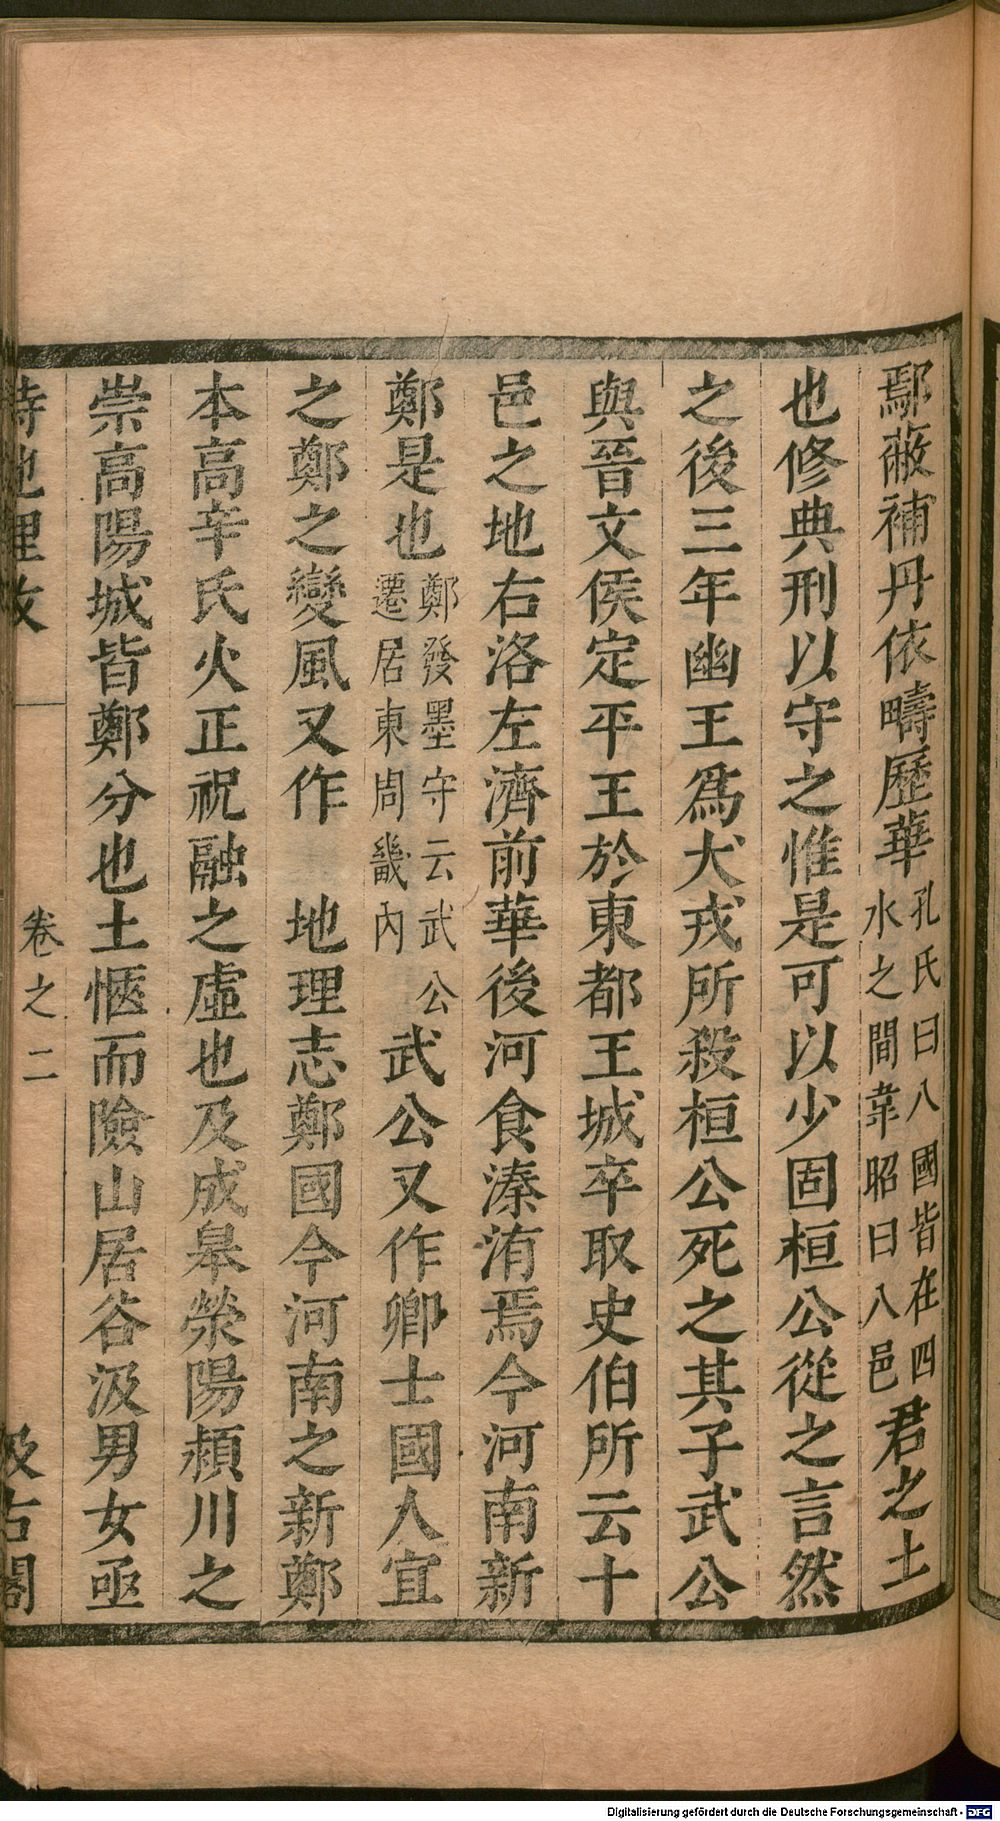 鄢蔽補丹依疇歷華孔氏曰八國皆在四水之間韋昭曰八邑君之土
也修典刑以守之惟是可以少固桓公從之言然
之後三年幽王爲犬戎所殺桓公死之其子武公
與晉文侯定平王於東都王城卒取史伯所云十
邑之地右洛左濟前華後河食溱洧焉今河南新
鄭是也鄭發墨守云武公遷居東周畿內武公又作卿士國人宜
之鄭之變風又作 地理志鄭國今河南之新鄭
本高辛氏火正祝融之虛也及成皋滎陽潁川之
崇高陽城皆鄭分也土愜而險山居谷汲男女亟
詩地理攷 卷之二 汲古閣
Digitalisierung gefördert durch die Deutsche Forschungsgemeinschaft - DFG